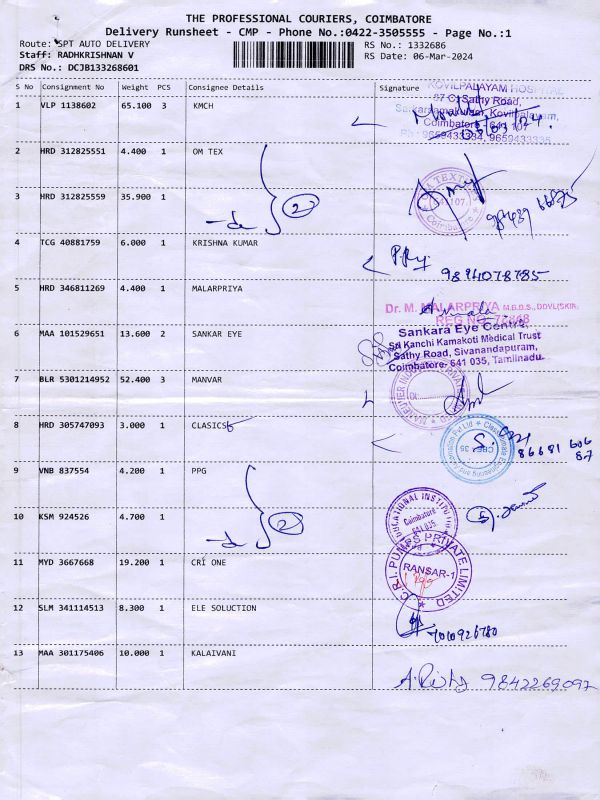 THE PROFESSIONAL COURIERS, COIMBATORE
Delivery Runsheet - CMP - Phone No.:0422-3505555 - Page No.:1
Route: SPT AUTO DELIVERY
RS No.: 1332686
Staff: RADHKRISHNAN V
RS Date: 06-Mar-2024
DRS No.: DCJB133268601
S No Consignment No Weight PCS Consignee Details Signature
1 VLP 1138602 65.100 3 KMCH
KOVILPALAYAM HOSPITAL
Sathy Road,
Kovilpalayam,
Coimbatore - 641 107
Ph : 9659433334, 9659433335
2 HRD 312825551 4.400 1 OM TEX
3 HRD 312825559 35.900 1
2
4 TCG 40881759 6.000 1 KRISHNA KUMAR
9894078785
5 HRD 346811269 4.400 1 MALARPRIYA
Dr. M. MALARPRIYA M.B.B.S., DDVL(SKIN)
6 MAA 101529651 13.600 2 SANKAR EYE
Sankara Eye Centre,
Sri Kanchi Kamakoti Medical Trust
Sathy Road, Sivanandapuram,
Coimbatore- 641 035, Tamilnadu.
7 BLR 5301214952 52.400 3 MANVAR
8 HRD 305747093 3.000 1 CLASICS
86681 606
87
9 VNB 837554 4.200 1 PPG
10 KSM 924526 4.700 1
2
EDUCATIONAL INSTITUTIONS
Coimbatore
641 035
11 MYD 3667668 19.200 1 CRI ONE
C.R.I. PUMPS PRIVATE LIMITED
RANSAR-1
12 SLM 341114513 8.300 1 ELE SOLUCTION
7010926780
13 MAA 301175406 10.000 1 KALAIVANI
9842269097